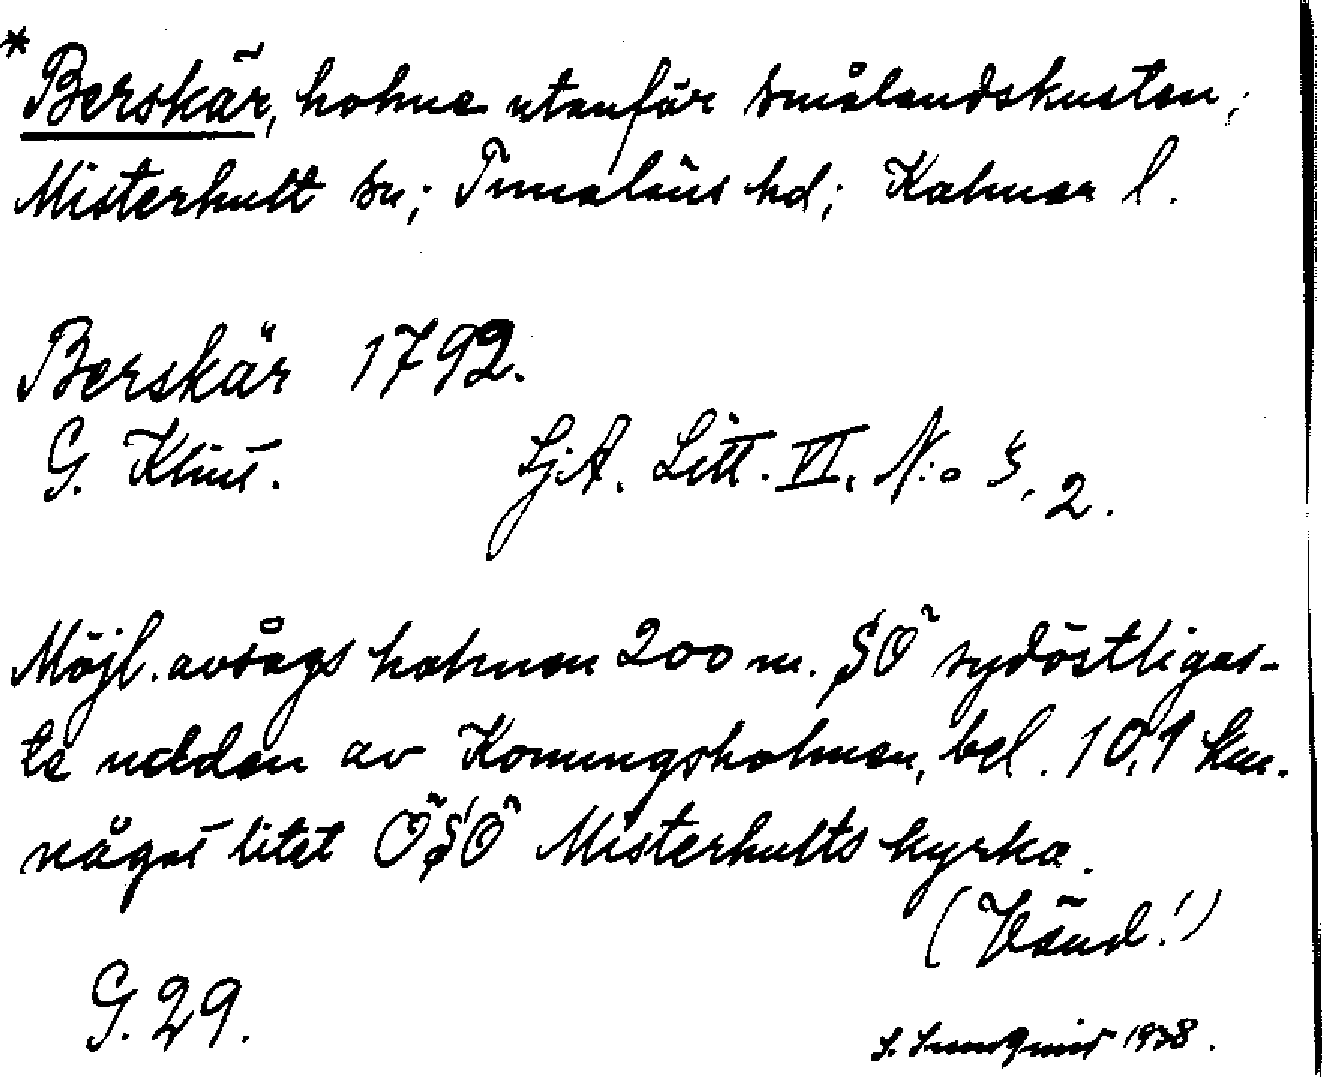 * Berskär, holme utanför Smålandskusten;
Misterhult sn; Tunaläns hd; Kalmar l.
Berskär 1792.
G. Klint. Sj.A. Litt. VI. N:o 3, 2.
Möjl. avsågs holmen 200 m. SÖ sydöstligas-
te udden av Konungsholmen, bel. 10,1 km.
något litet ÖSÖ Misterhults kyrka.
(Vänd!)
G. 29.
1938.